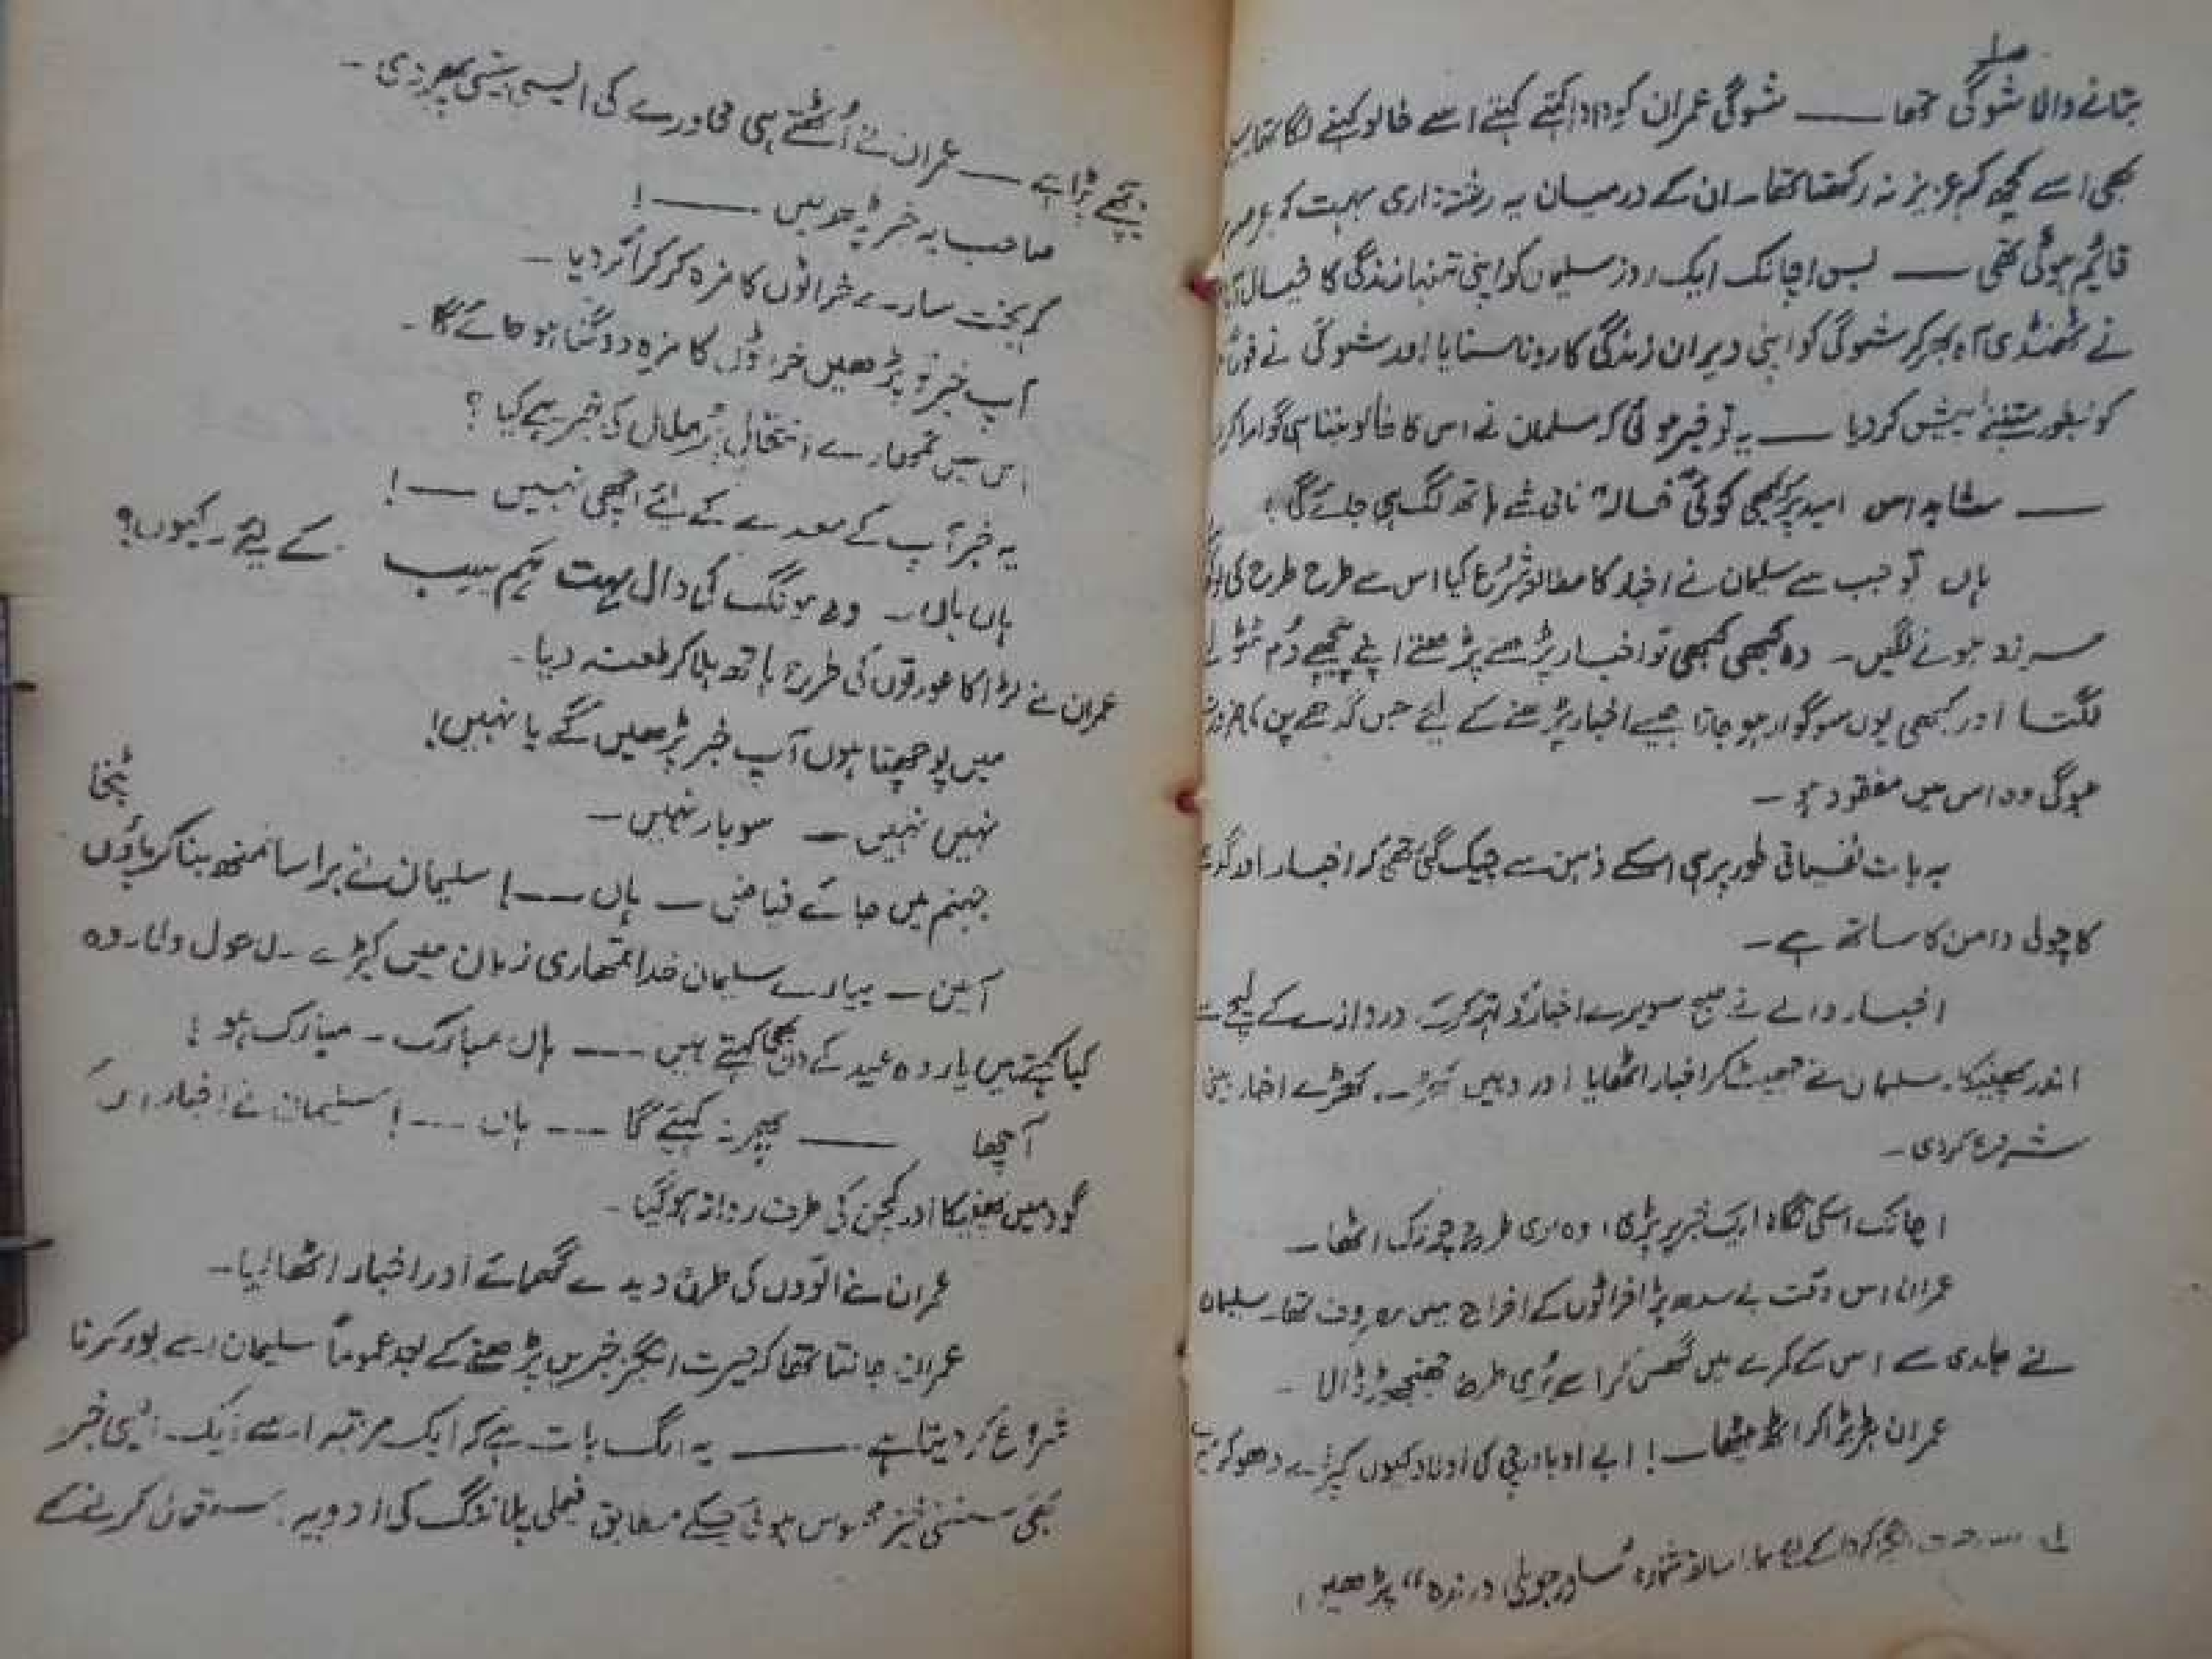 بتانے والا شوگی تھا —— شوگی عمران کو دادا کہتے کہتے اسے خالو کہنے لگا تھا
بھی اسے کچھ کم عزیز نہ رکھتا تھا۔ ان کے درمیان یہ رشتہ داری بہت کم عرصہ
قائم ہوئی تھی — بس اچانک ایک روز سلیمان کو اپنی تنہا زندگی کا خیال
نے ٹھنڈی آہ بھر کر شوگی کو اپنی ویران زندگی کا رونا سنایا اور شوگی نے فوراً
کو بطور متبنے پیش کر دیا — یہ تو خیر ہوئی کہ سلیمان نے اس کا خالو بننا ہی گوارا کر
— شاید اس امید پر کبھی کوئی "خالہ" نامی شے ہاتھ لگ ہی جائے گی!
ہاں تو جب سے سلیمان نے اخبار کا مطالعہ شروع کیا اس سے طرح طرح کی
سرزد ہونے لگیں۔ وہ کبھی کبھی تو اخبار پڑھتے پڑھتے اپنے پیچھے دُم ٹٹولنے
لگتا اور کبھی یوں سوگوار ہو جاتا جیسے اخبار پڑھنے کے لیے جس گدھے پن کی ضرورت
ہوگی وہ اس میں مفقود ہو۔
یہ بات نفسیاتی طور پر ہی اسکے ذہن سے چپک گئی تھی کہ اخبار اور گدھے
کا چولی دامن کا ساتھ ہے۔
اخبار والے نے صبح سویرے اخبار دروازے کے نیچے سے
اندر پھینکا۔ سلیمان نے جھپٹ کر اخبار اٹھایا اور وہیں کھڑے کھڑے اخبار بینی
شروع کر دی۔
اچانک اسکی نگاہ ایک خبر پر پڑی، وہ بری طرح چونک اٹھا۔
عمران اس وقت بے سدھ پڑا خراٹوں کے اخراج میں مصروف تھا۔ سلیمان
نے جلدی سے اس کے کمرے میں گھس کر اسے بُری طرح جھنجھوڑ ڈالا۔
عمران ہڑبڑا کر اٹھ بیٹھا۔! ابے او باورچی کی اولاد کیوں کپڑے دھو کر میرے
سالنامہ شمارہ "ساور جوبلی درندہ" پڑھیں!
پیچھے پڑا ہے —— عمران نے اُٹھتے ہی محاورے کی ایسی تیسی پھیر دی۔
صاحب یہ خبر پڑھو ہیں ——!
کمبخت سارے خراٹوں کا مزہ کرکرا کر دیا۔
آپ خبر تو پڑھیں خراٹوں کا مزہ دوگنا ہو جائے گا۔
اس میں تمہارے انتقال پُر ملال کی خبر ہے کیا؟
یہ خبر آپ کے معدے کے لئے اچھی نہیں —!
ہاں ہاں۔ وہ مونگ کی دال بہت کے لئے۔ کیوں؟
عمران نے لڑاکا عورتوں کی طرح ہاتھ ہلا کر طعنہ دیا۔
میں پوچھتا ہوں آپ خبر پڑھیں گے یا نہیں!
نہیں نہیں — سو بار نہیں۔
جہنم میں جائے فیاضی — ہاں —! سلیمان نے برا سا منھ بنا کر پاؤں پٹخا
آمین — پیارے سلیمان خدا تمھاری زبان میں کیڑے۔ لاحول ولا۔ وہ
کیا کہتے ہیں یار وہ عید کے دن کیا کہتے ہیں --- ہاں مبارک۔ مبارک ہو!
اچھا —— پھر نہ کہیئے گا --- ہاں ---! سلیمان نے اخبار اس کی
گود میں پھینکا اور کچن کی طرف روانہ ہو گیا۔
عمران نے الوؤں کی طرح دیدے گھمائے اور اخبار اٹھا لیا۔
عمران جانتا تھا کہ حیرت انگیز خبریں پڑھنے کے بعد عموماً سلیمان اسے بور کرنا
شروع کر دیتا ہے —— یہ الگ بات ہے کہ ایک مرتبہ اسے ایک ایسی خبر
بھی سنسنی خیز محسوس ہوئی جسکے مطابق فیملی پلاننگ کی ادویہ استعمال کرنے کے